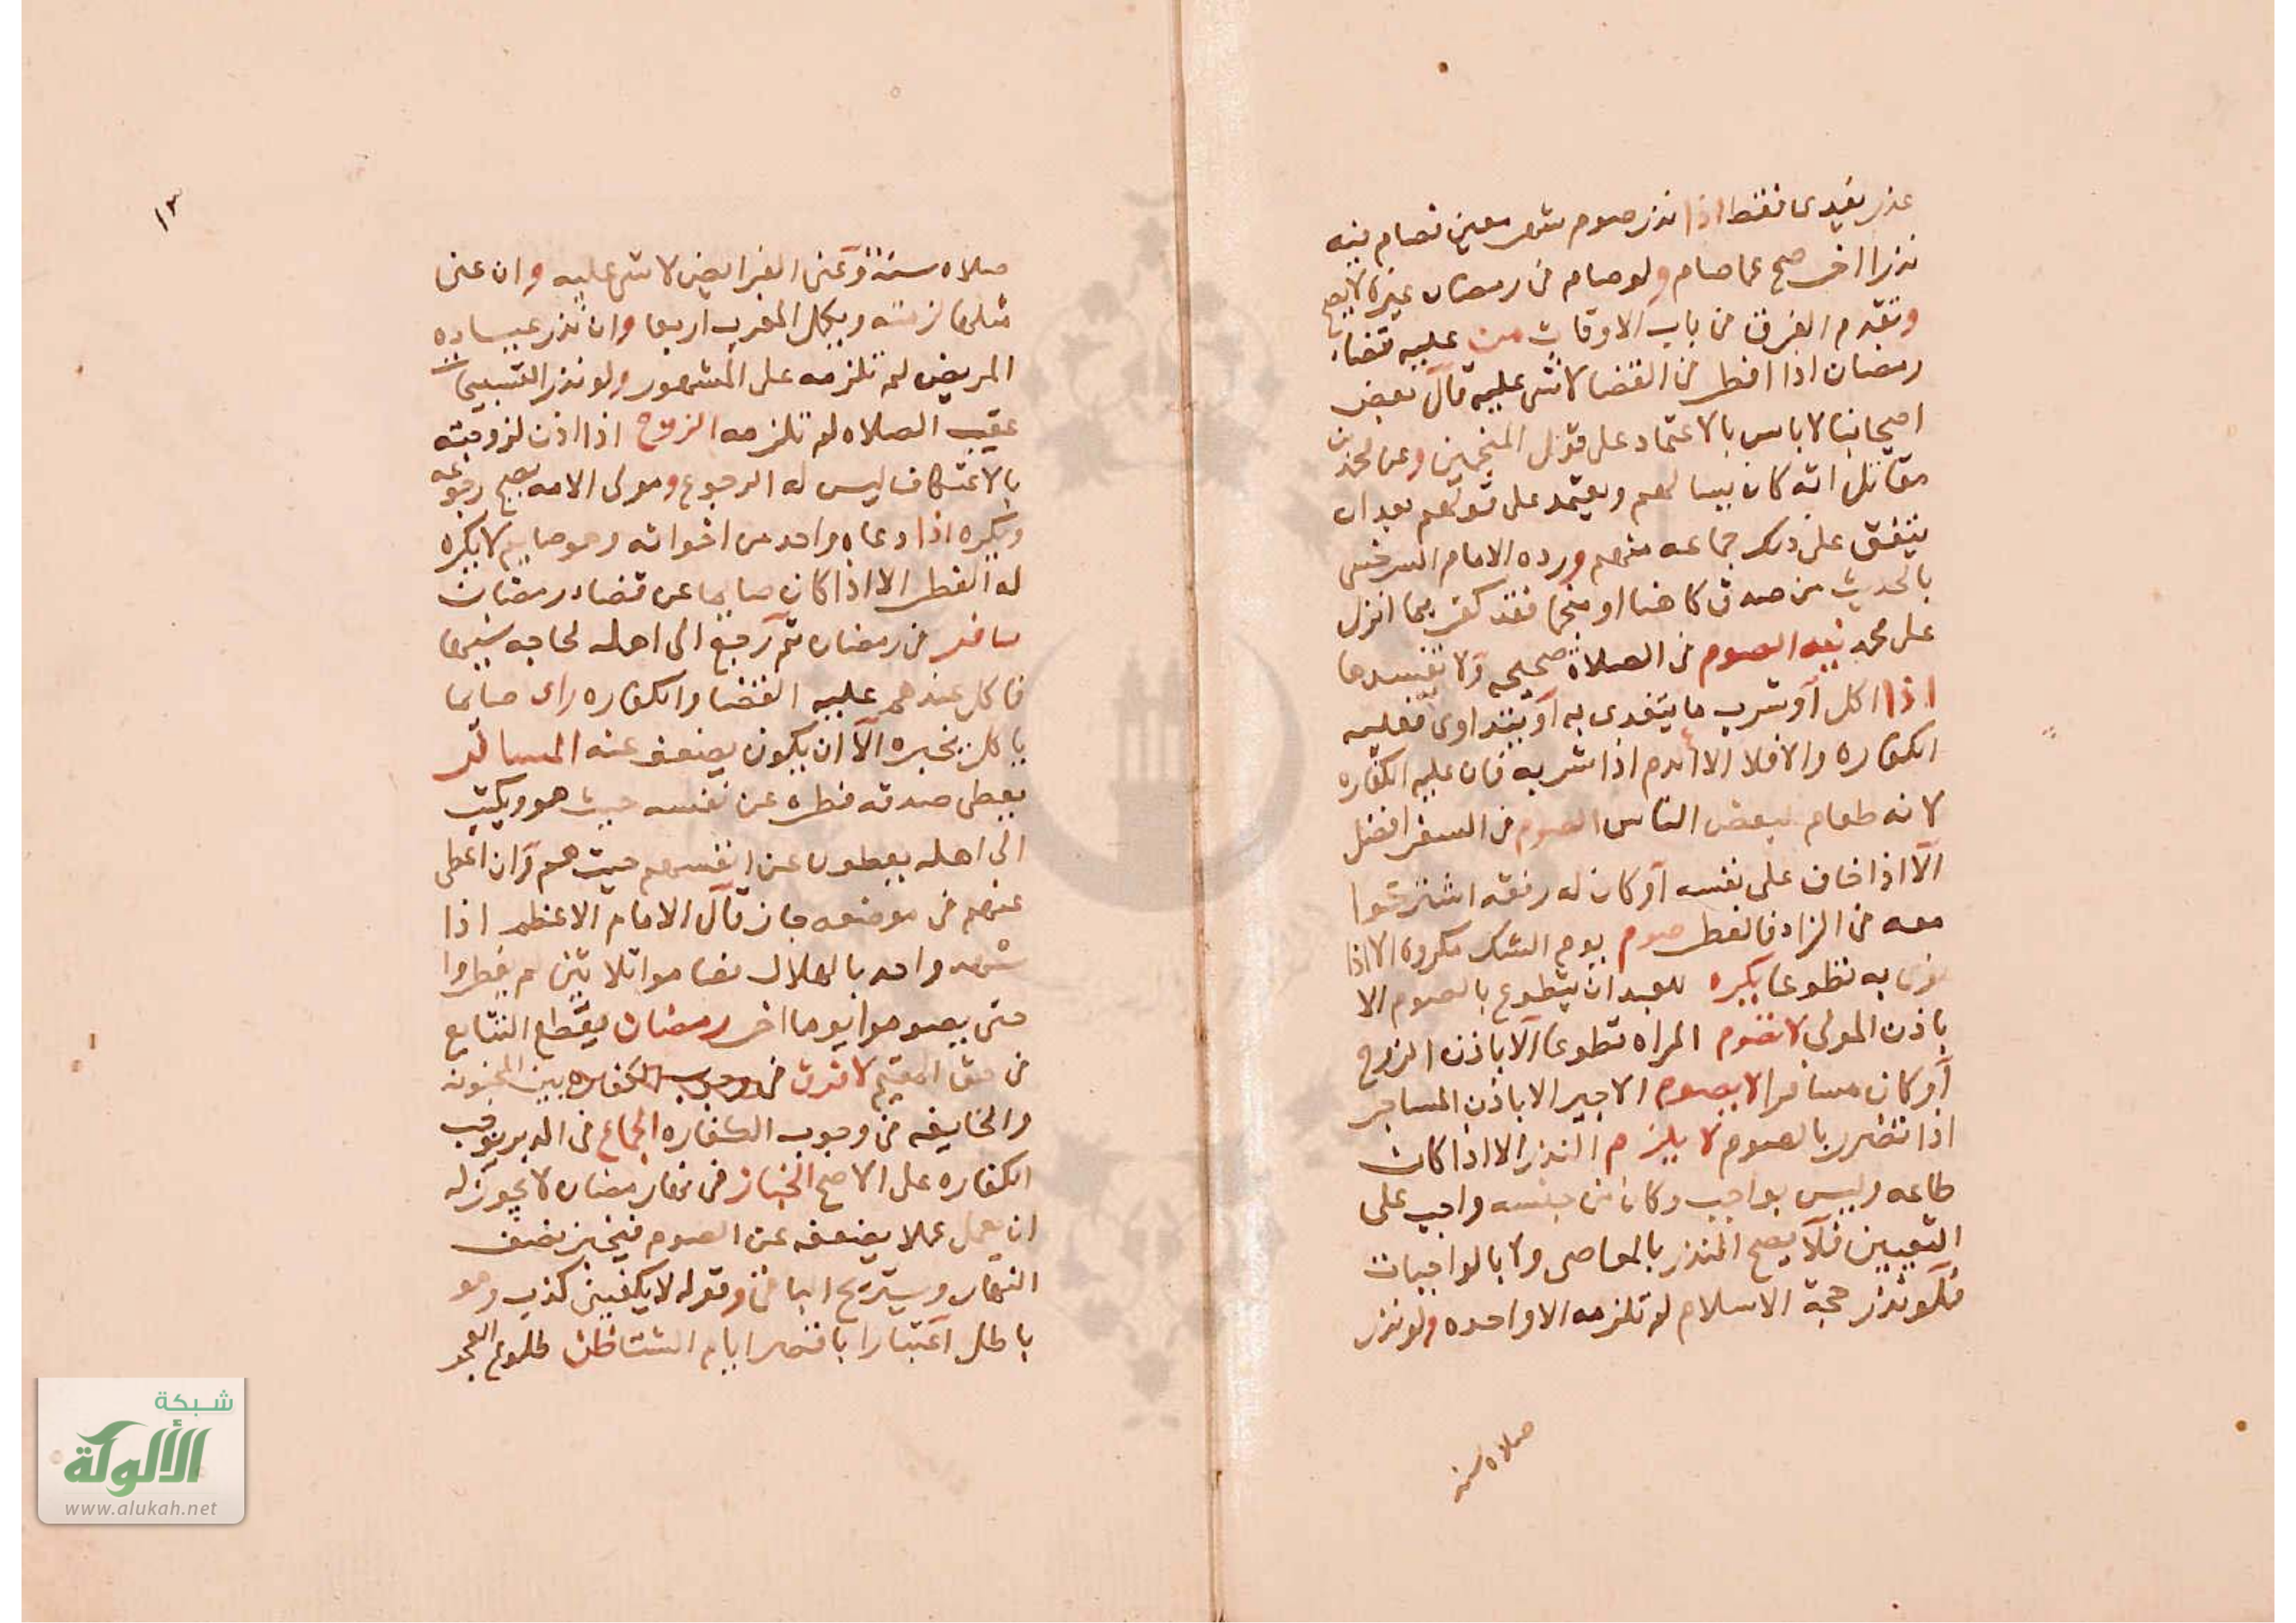 عذر يفدى فقط اذا نذر صوم شهر معين فصام فيه
نذرا اخر صح عما صام ولو صام فى رمضان غيره لا يصح
وتقدم الفرق فى باب الاوقات من عليه قضاء
رمضان اذا افطر فى القضا لا شى عليه قال بعض
اصحابنا لا باس بالاعتماد على قول المنجمين وعن محمد بن
مقاتل انه كان يسالهم ويعتمد على قولهم بعد ان
يتفق على ذلك جماعه منهم ورده الامام السرخسى
بالحديث من صدق كاهنا او منجما فقد كفر بما انزل
على محمد نيه الصوم فى الصلاة صحيحه ولا تفسدها
اذا اكل او شرب ما يتغدى به او يتداوى فعليه
الكفاره والا فلا الا الدم اذا شربه فان عليه الكفاره
لانه طعام لبعض الناس الصوم فى السفر افضل
الا اذا خاف على نفسه او كان له رفقه اشتركوا
معه فى الزاد فالفطر صوم يوم الشك مكروه الا اذا
نوى به تطوعا يكره للعبد ان يتطوع بالصوم الا
باذن المولى لا تصوم المراه تطوعا الا باذن الزوج
او كان مسافرا لا يصوم الاجير الا باذن المستاجر
اذا تضرر بالصوم لا يلزم النذر الا اذا كان
طاعه وليس بواجب وكان من جنسه واجب على
التعيين فلا يصح النذر بالمعاصى ولا بالواجبات
فلو نذر حجة الاسلام لم تلزمه الا واحده ولو نذر
صلاه سنه
١٣
صلاه سنة وعنى الفرايض لا شى عليه وان عنى
مثلها لزمته ويكمل المغرب اربعا وان نذر عيادة
المريض لم تلزمه على المشهور ولو نذر التسبيحات
عقيب الصلاه لم تلزمه الزوج اذا اذن لزوجته
بالاعتكاف ليس له الرجوع ومولى الامه يصح رجوعه
ويكره اذا دعاه واحد من اخوانه وهو صايم لا يكره
له الفطر الا اذا كان صايما عن قضاء رمضان
سافر فى رمضان ثم رجع الى اهله لحاجه نسيها
فاكل عندهم عليه القضا والكفاره راى صايما
ياكل يخبره الا ان يكون يضعف عنه المسافر
يعطى صدقه فطره عن نفسه حيث هو ويكتب
الى اهله يعطون عن انفسهم حيث هم وان اعطى
عنهم فى موضعه جاز قال الامام الاعظم اذا
شهد واحد بالهلال فصاموا ثلاثين لم يفطروا
حتى يصوموا يوما اخر رمضان يقطع التتابع
فى حق المقيم لا فرق فى وجوب الكفاره بين المجنونه
والخايفه فى وجوب الكفاره الجماع فى الدبر يوجب
الكفاره على الاصح الخباز فى نهار رمضان لا يجوز له
ان يعمل عملا يضعفه عن الصوم فيخبز نصف
النهار ويستريح الباقى وقوله لا يكفينى كذب وهو
باطل اعتبارا باقصر ايام الشتا ظن طلوع الفجر
شبكة
الألوكة
www.alukah.net